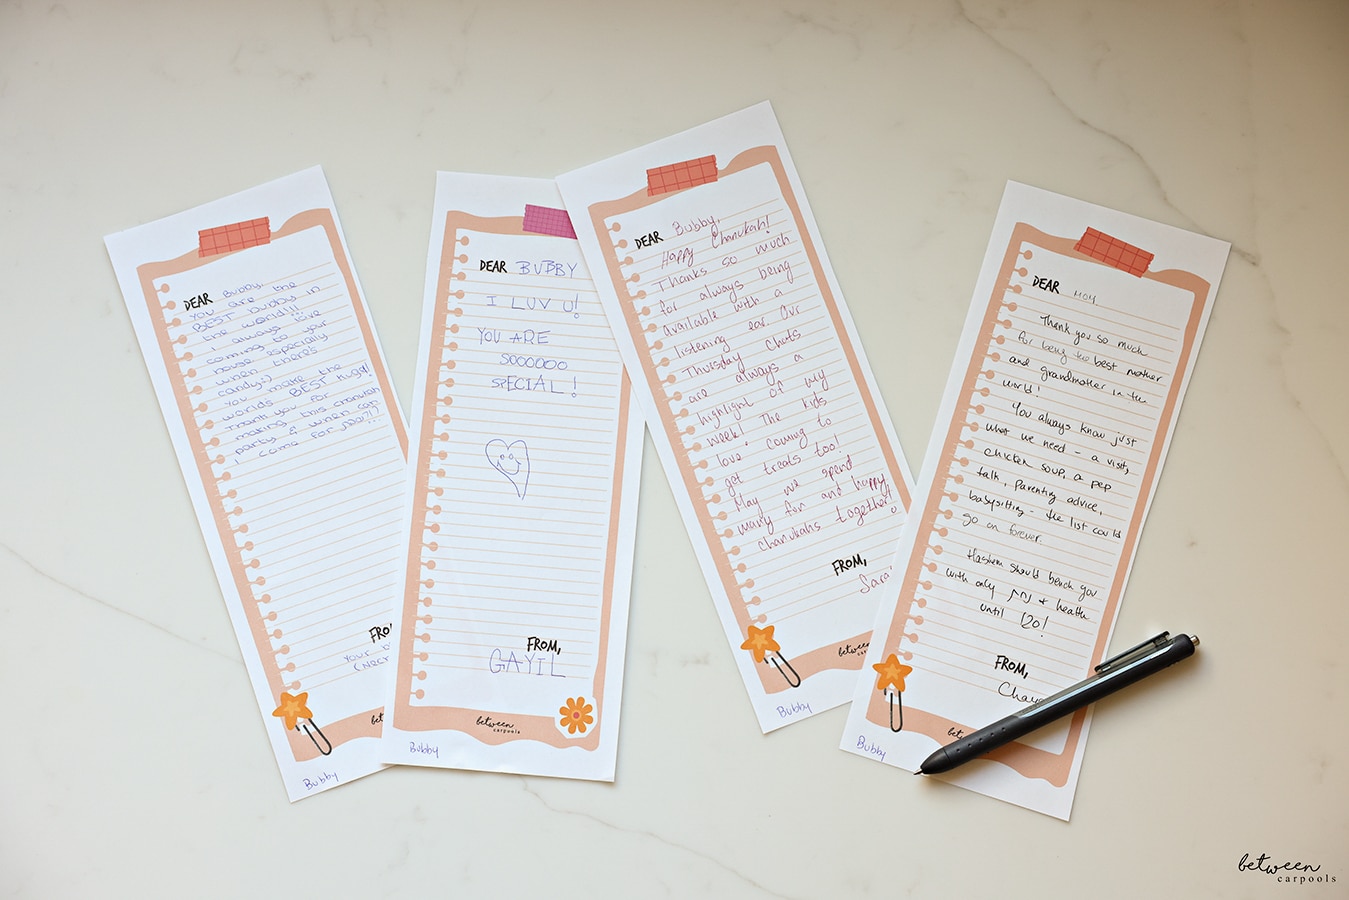 DEAR Bubby,
You are the
BEST bubby in
the world!!!
I always love
coming to your
house especially
when there's
candy?
You make the
worlds BEST kugel!
Thank you for
making this chanukah
party & when can
I come for
FROM,
your b
Bubby
DEAR BUBBY
I LUV U!
YOU ARE
SOOOOOO
SPECIAL!
FROM,
GAYIL
between
carpools
Bubby
DEAR Bubby,
Happy Chanukah!
Thanks so much
for always being
available with a
listening ear. Our
Thursday chats
are always a
highlight of my
week! The kids
love coming to
get treats too!
May we spend
many fun and happy
chanukahs together!
FROM,
Sara
between
Bubby
DEAR MOM,
Thank you so much
for being the best mother
and grandmother in the
world!
You always know just
what we need - a visit,
chicken soup, a pep
talk, parenting advice,
babysitting - the list could
go on forever.
Hashem should bench you
with only נחת + health
until 120!
FROM,
Chay
Bubby
between
carpools